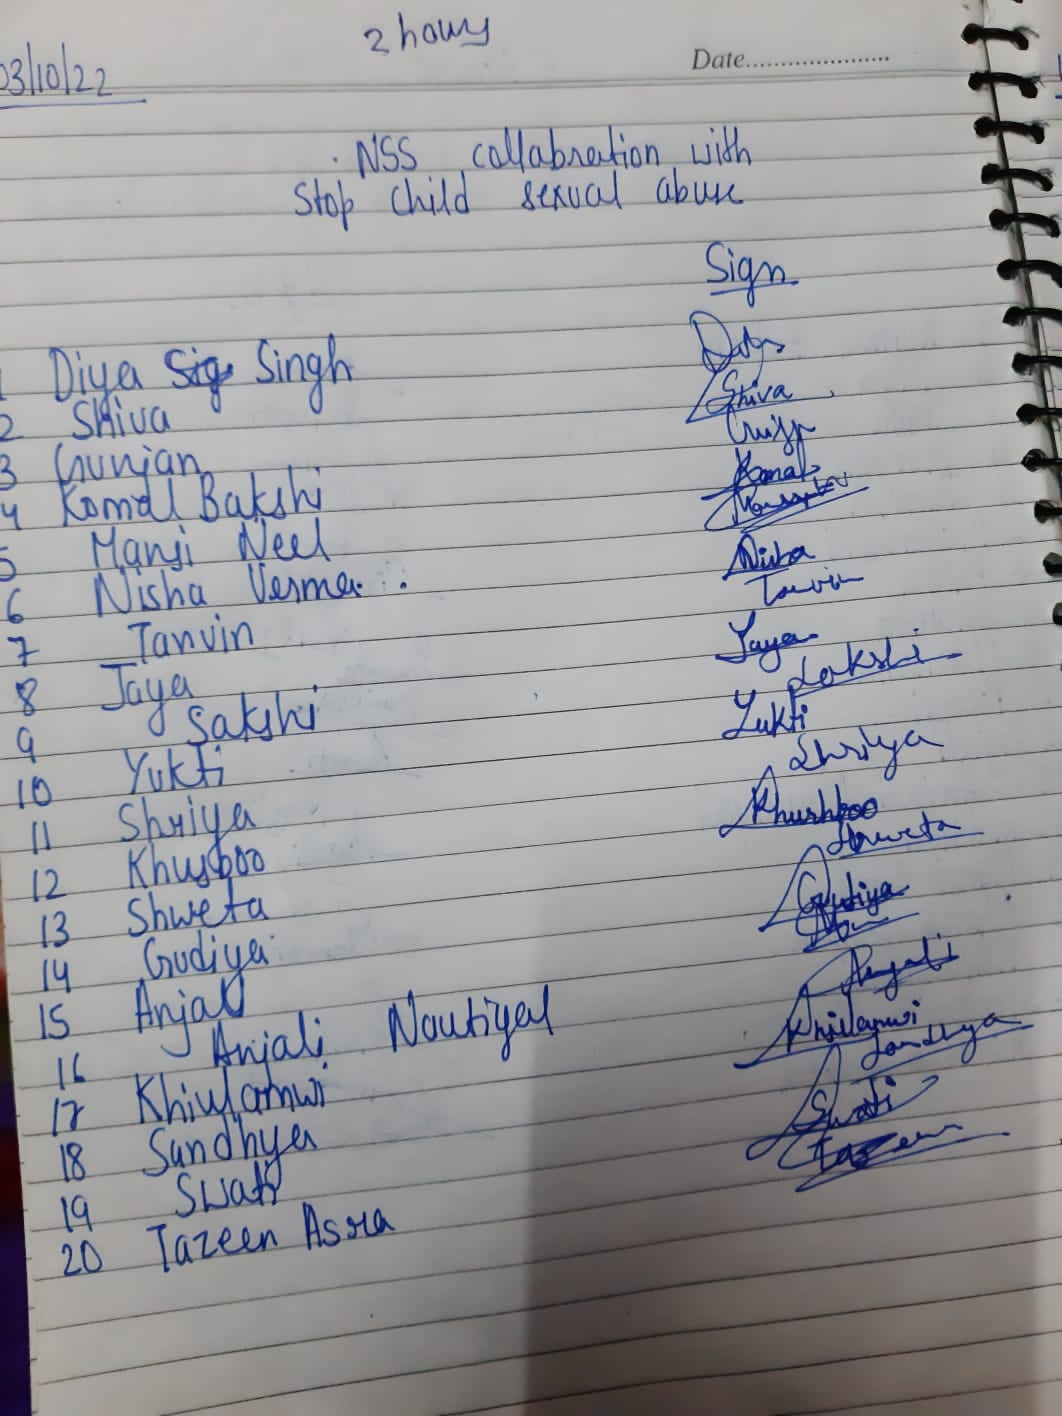 2 hours
03/10/22
Date.....................
NSS collabration with
Stop child sexual abuse
Sign
1 Diya Singh
2 Shiva Shiva
3 Gunjan
4 Komal Bakshi Komal
5 Mansi Neel
6 Nisha Verma Nisha
7 Tanvin Tanvin
8 Jaya Jaya
9 Sakshi Sakshi
10 Yukti Yukti
11 Shriya Shriya
12 Khusboo Khushboo
13 Shweta Shweta
14 Gudiya Gudiya
15 Anjali
16 Anjali Nautiyal Anjali
17
18 Sandhya Sandhya
19 Swati Swati
20 Tazeen Asra Tazeen